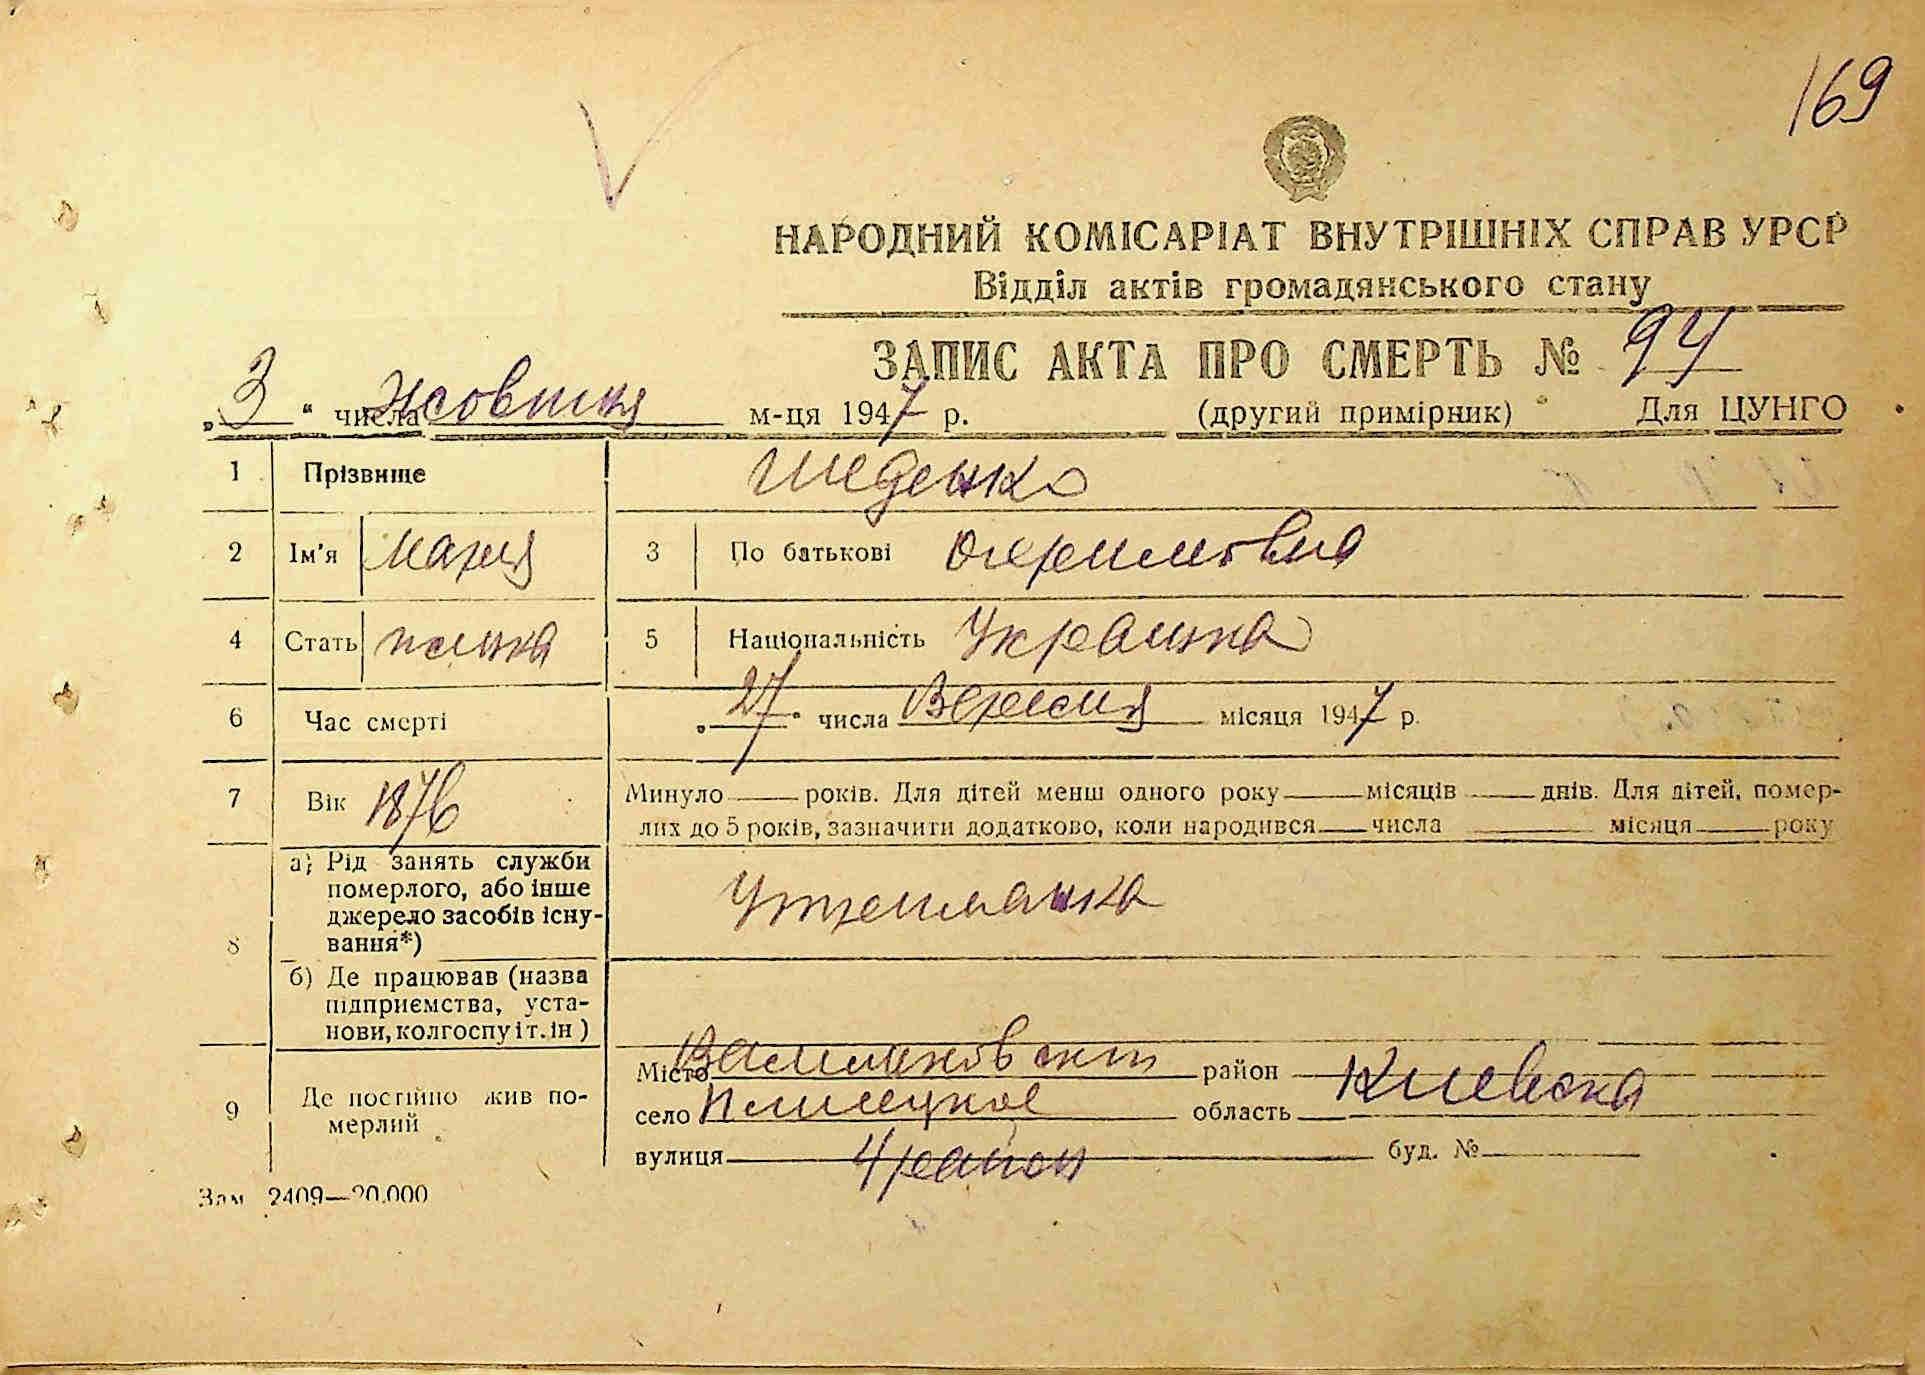 169
НАРОДНИЙ КОМІСАРІАТ ВНУТРІШНІХ СПРАВ УРСР
Відділ актів громадянського стану
ЗАПИС АКТА ПРО СМЕРТЬ № 94
„3“ числа жовтня м-ця 1947 р. (другий примірник) Для ЦУНГО
1 Прізвище Шеденко
2 Ім'я Мария 3 По батькові
4 Стать 5 Національність Украинка
6 Час смерті „27“ числа Вересня місяця 1947 р.
7 Вік 1876 Минуло років. Для дітей менш одного року місяців днів. Для дітей, помер-
лих до 5 років, зазначити додатково, коли народився числа місяця року
8 а) Рід занять служби
померлого, або інше
джерело засобів існу-
вання*)
Утреманка
б) Де працював (назва
підприємства, уста-
нови, колгоспу і т. ін)
9 Де постійно жив по-
мерлий
Місто район Киевска
село Плисецкое область
вулиця 4 район буд. №
Зам 2409—20.000